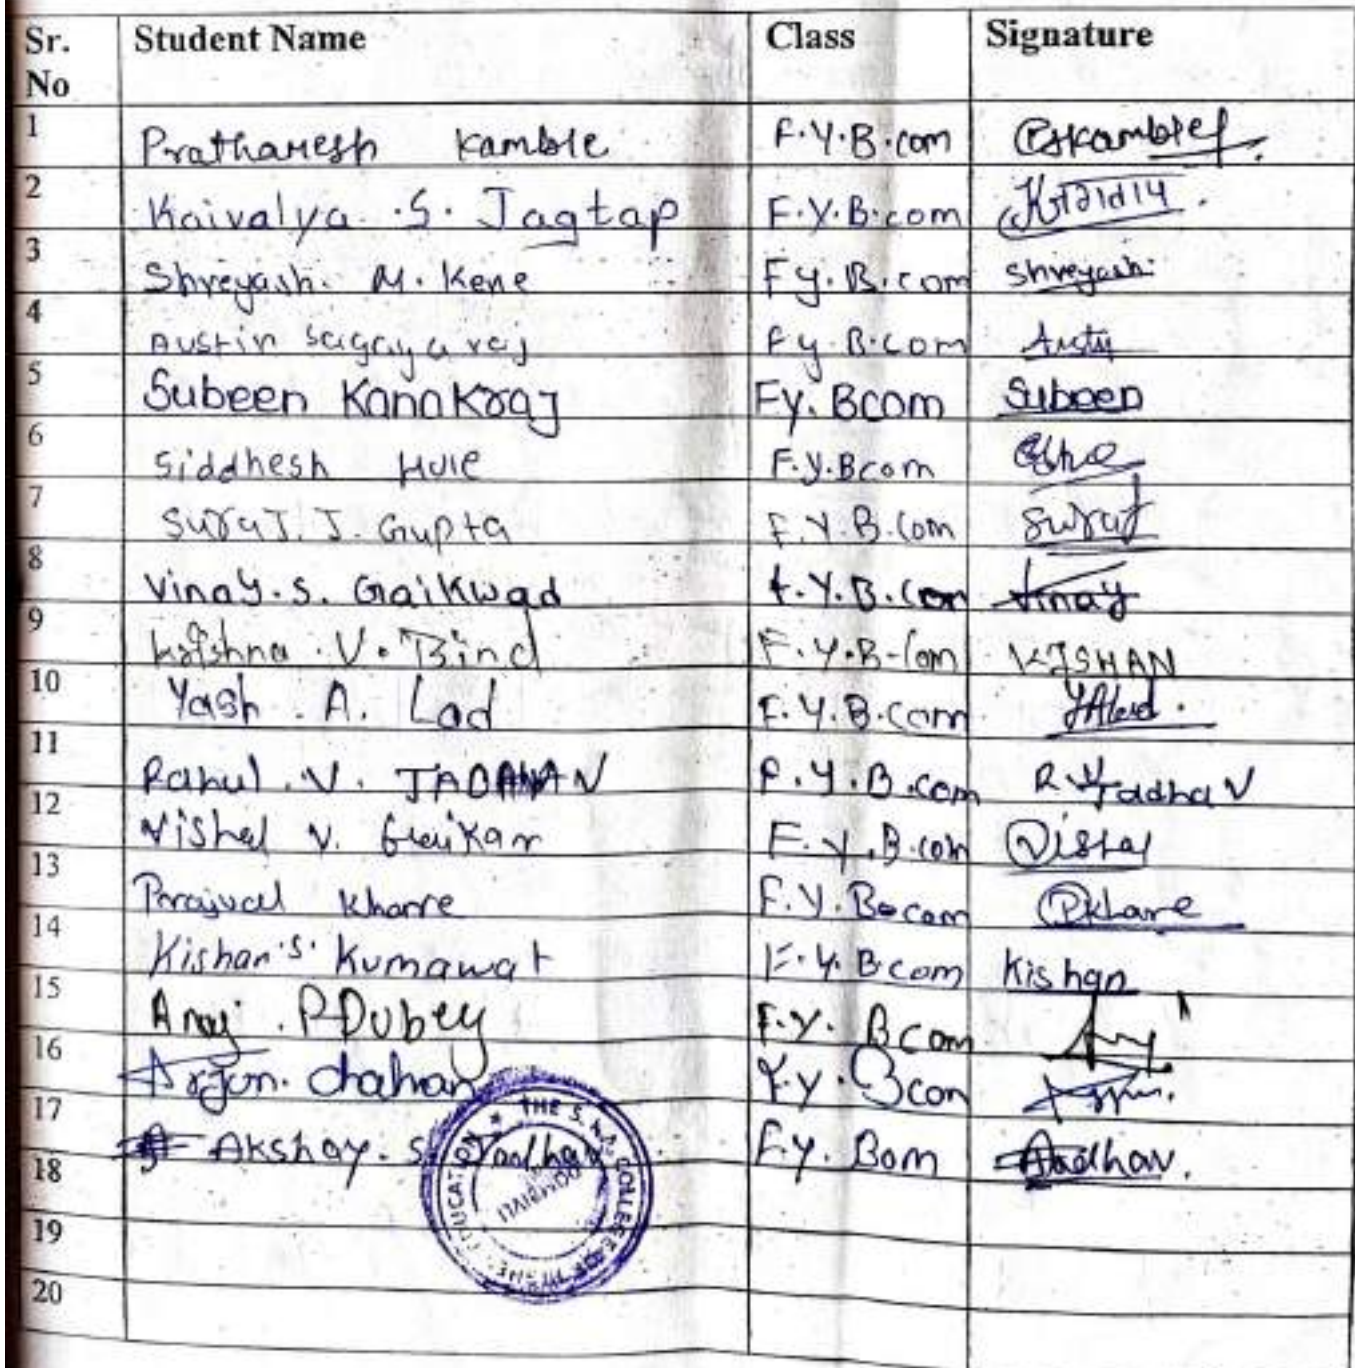 Sr. No Student Name Class Signature
1 Prathamesh Kamble F.Y.B.com PSKamble
2 Kaivalya .S. Jagtap F.Y.B.com
3 Shreyash. M. Kene Fy.B.com Shreyash
4 Austin Sagayaraj Fy.B.com Austin
5 Subeen Kanakraj Fy. Bcom Subeen
6 Siddhesh Hule F.Y.Bcom
7 Suraj. J. Gupta F.Y.B.Com Suraj
8 Vinay.S. Gaikwad F.Y.B.Com Vinay
9 Krishna .V. Bind F.Y.B-Com KISHAN
10 Yash . A. Lad F.Y.B.com YALad.
11 Rahul .V. JADAHAV F.Y.B.com R.V.Jadhav
12 Vishal V. F.Y.B.com Vishal
13 Prajwal Kharre F.Y.B.com PKhare
14 Kishan.S. Kumawat F.Y.Bcom Kishan
15 P Dubey F.Y. Bcom
16 Arjun. chahan Y.Y. Bcon Arjun.
17 Akshay. S. Jadhav F.Y. Bom AJadhav.
18
19
20
THE S. COLLEGE OF EDUCATION
DOMBIVLI